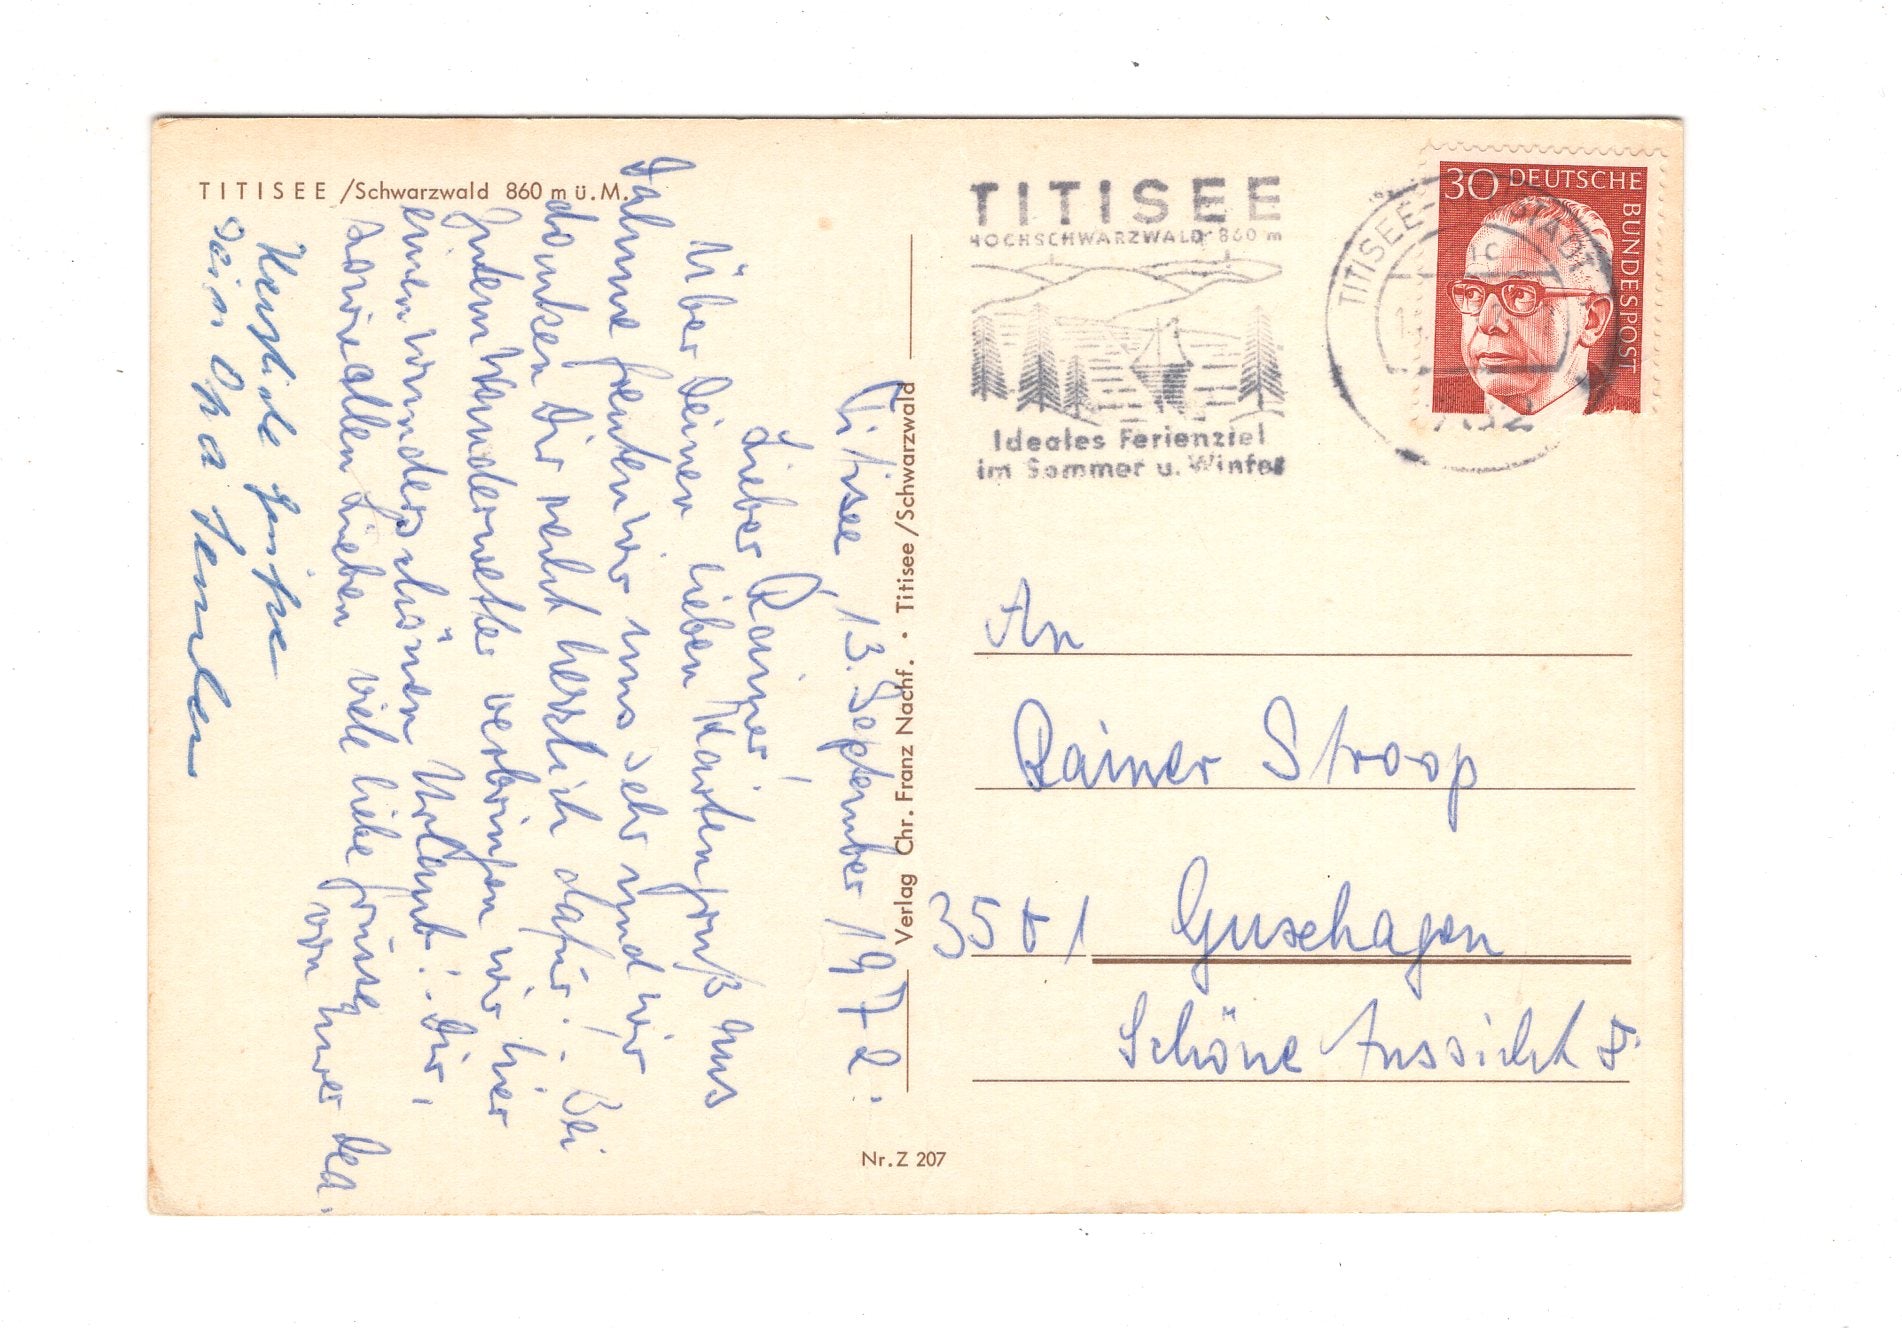 TITISEE /Schwarzwald 860 m ü. M.
Titisee 13. September 1972.
Lieber Rainer!
Über Deinen lieben Kartengruß aus
Dahme freuten wir uns sehr und wir
danken Dir recht herzlich dafür! Bei
gutem Wanderwetter verbringen wir hier
einen wunderschönen Urlaub! Dir,
sowie allen Lieben viele liebe Grüsse
von Eurer
Herzliche Grüße
Dein Opa
Verlag Chr. Franz Nachf. • Titisee /Schwarzwald
Nr. Z 207
TITISEE
HOCHSCHWARZWALD 860 m
Ideales Ferienziel
im Sommer u. Winter
TITISEE-
30 DEUTSCHE
BUNDESPOST
An
Rainer Stroop
3501 Guxhagen
Schöne Aussicht